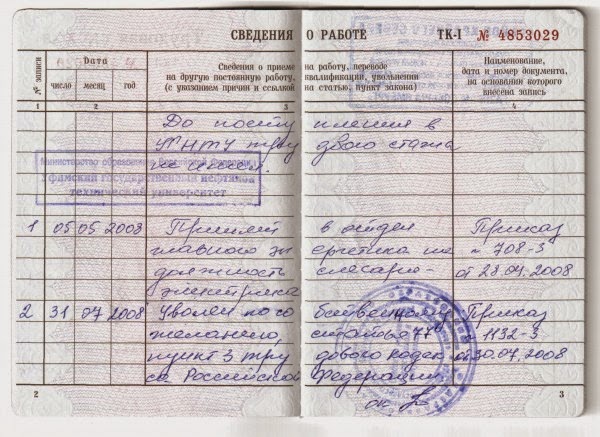 СВЕДЕНИЯ О РАБОТЕ ТК-I № 4853029
№ записи
Дата
число месяц год
Сведения о приеме на работу, переводе
на другую постоянную работу, квалификации, увольнении
(с указанием причин и ссылкой на статью, пункт закона)
Наименование,
дата и номер документа,
на основании которого
внесена запись
1 2 3 4
До поступления в
УГНТУ трудового стажа
не имел.
Министерство образования Российской Федерации
Уфимский государственный нефтяной
технический университет
1 05 05 2008 Принят в отдел Приказ
главного энергетика на № 708-3
должность слесаря- от 28.04.2008
электрика
2 31 07 2008 Уволен по собственному Приказ
желанию, статья 77 1132-3
пункт 3 трудового кодек от 30.07.2008
са Российской Федерации
2 3